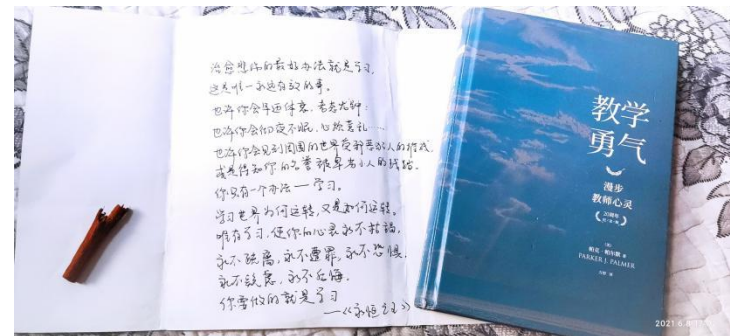 治愈悲伤的最好办法就是学习,
这是唯一永远有效的事。
也许你会年迈体衰,老态龙钟;
也许你会彻夜不眠,心烦意乱……
也许你会见到周围的世界受邪恶狂人的
或是得知你的名誉被卑劣小人
你只有一个办法——学习。
学习世界为何运转,又是如何运转。
唯有学习,使你的心灵永不枯竭,
永不疏离,永不遭罪,永不恐惧,
永不后悔。
你要做的就是学习
——《永恒之王》
教学
勇气
漫步
教师心灵
20周年
帕克·帕尔默 著
PARKER J. PALMER
2021.6.8